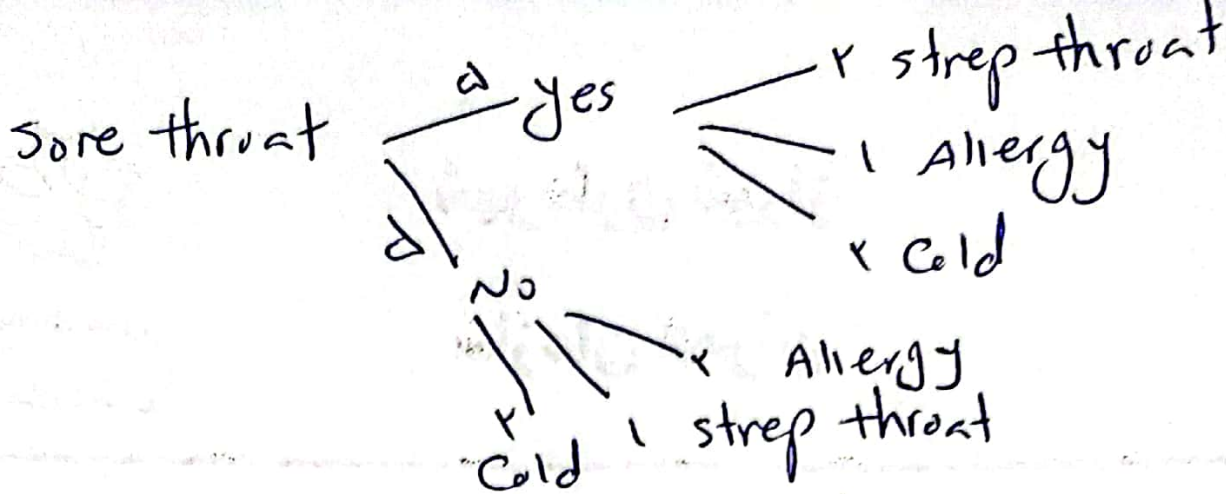 Sore throat
۵ yes
۲ strep throat
۱ Allergy
۲ Cold
۵
No
۲ Allergy
۱ strep throat
۲
Cold